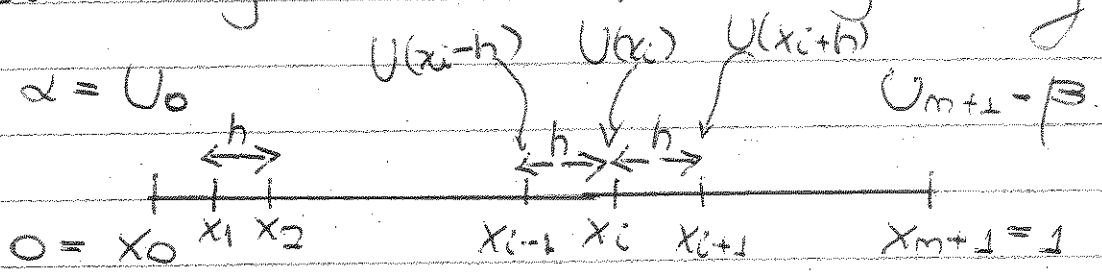 U(xi-h) U(xi) U(xi+h)
α = U0 Um+1 - β.
h h h
0 = x0 x1 x2 xi-1 xi xi+1 xm+1 = 1